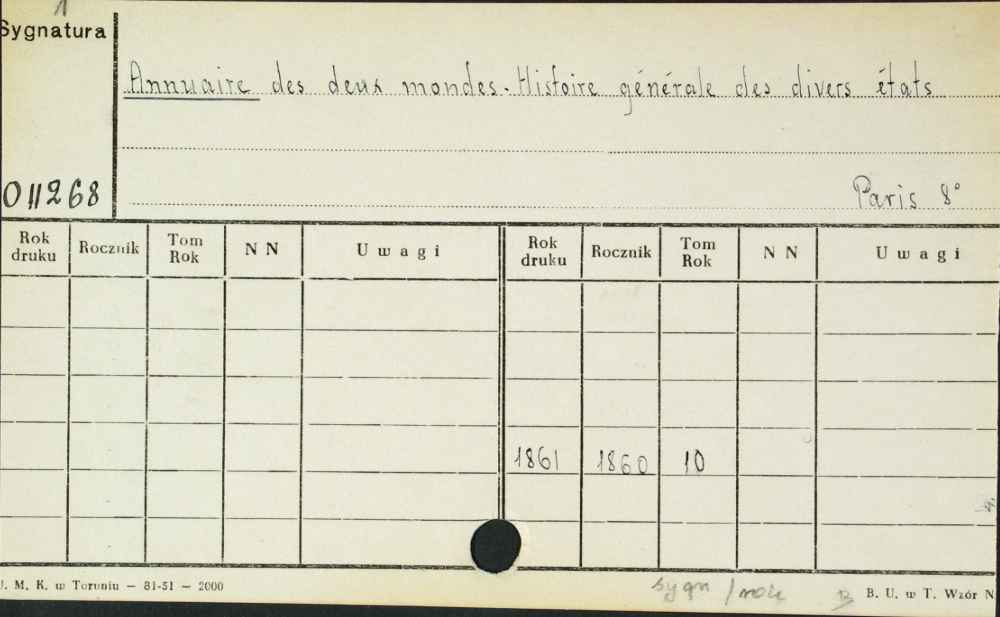 1
Sygnatura
Annuaire des deux mondes. Histoire générale des divers états
011268
Paris 8°
Rok druku Rocznik Tom Rok N N Uwagi Rok druku Rocznik Tom Rok N N Uwagi
1861 1860 10
J. M. K. w Toruniu — 81-51 — 2000
sygn / rok
B. U. w T. Wzór N